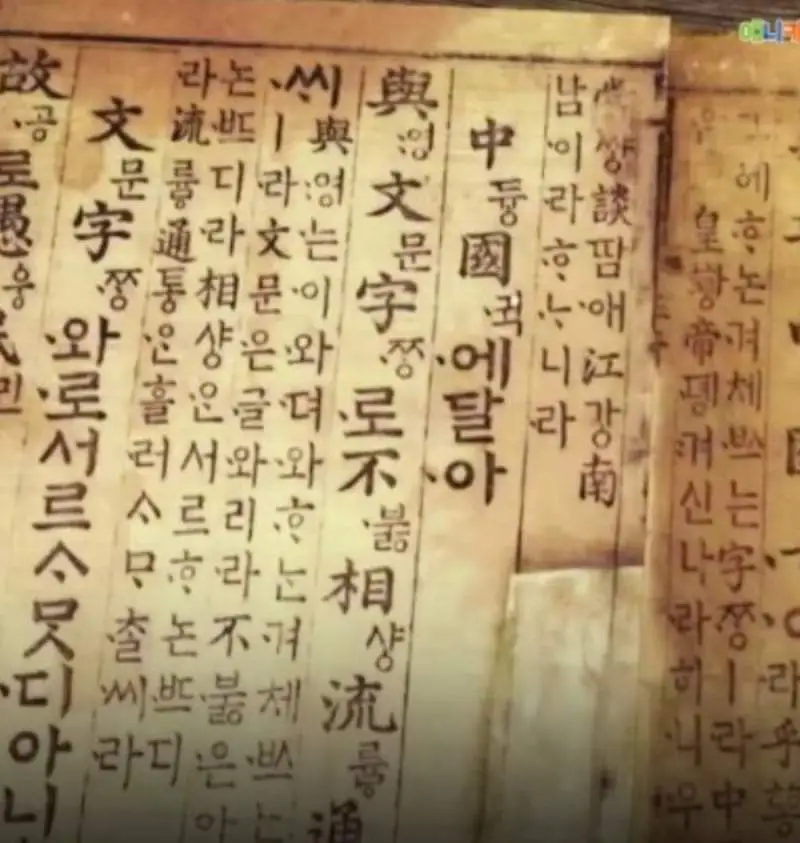 에ᄒᆞ논겨체ᄡᅳ는字ᄍᆞᆼㅣ라中
皇황帝뎽겨신나라히니우
常썅談땀애江강南
남이라ᄒᆞᄂᆞ니라
中듀ᇰ國귁에달아
與영文문字ᄍᆞᆼ로不부ᇙ相샹流류ᇢ通
씨與영는이와뎌와ᄒᆞ논겨체ᄡᅳ는
ㅣ라文문은글와리라不부ᇙ은아
논ᄠᅳ디라相샹ᄋᆞᆫ서르ᄒᆞ논ᄠᅳ디
라流류ᇢ通통ᄋᆞᆫ흘러ᄉᆞᄆᆞᄎᆞᆯ씨라
文문字ᄍᆞᆼ와로서르ᄉᆞᄆᆞᆺ디아니
故공로愚웅民민
애니